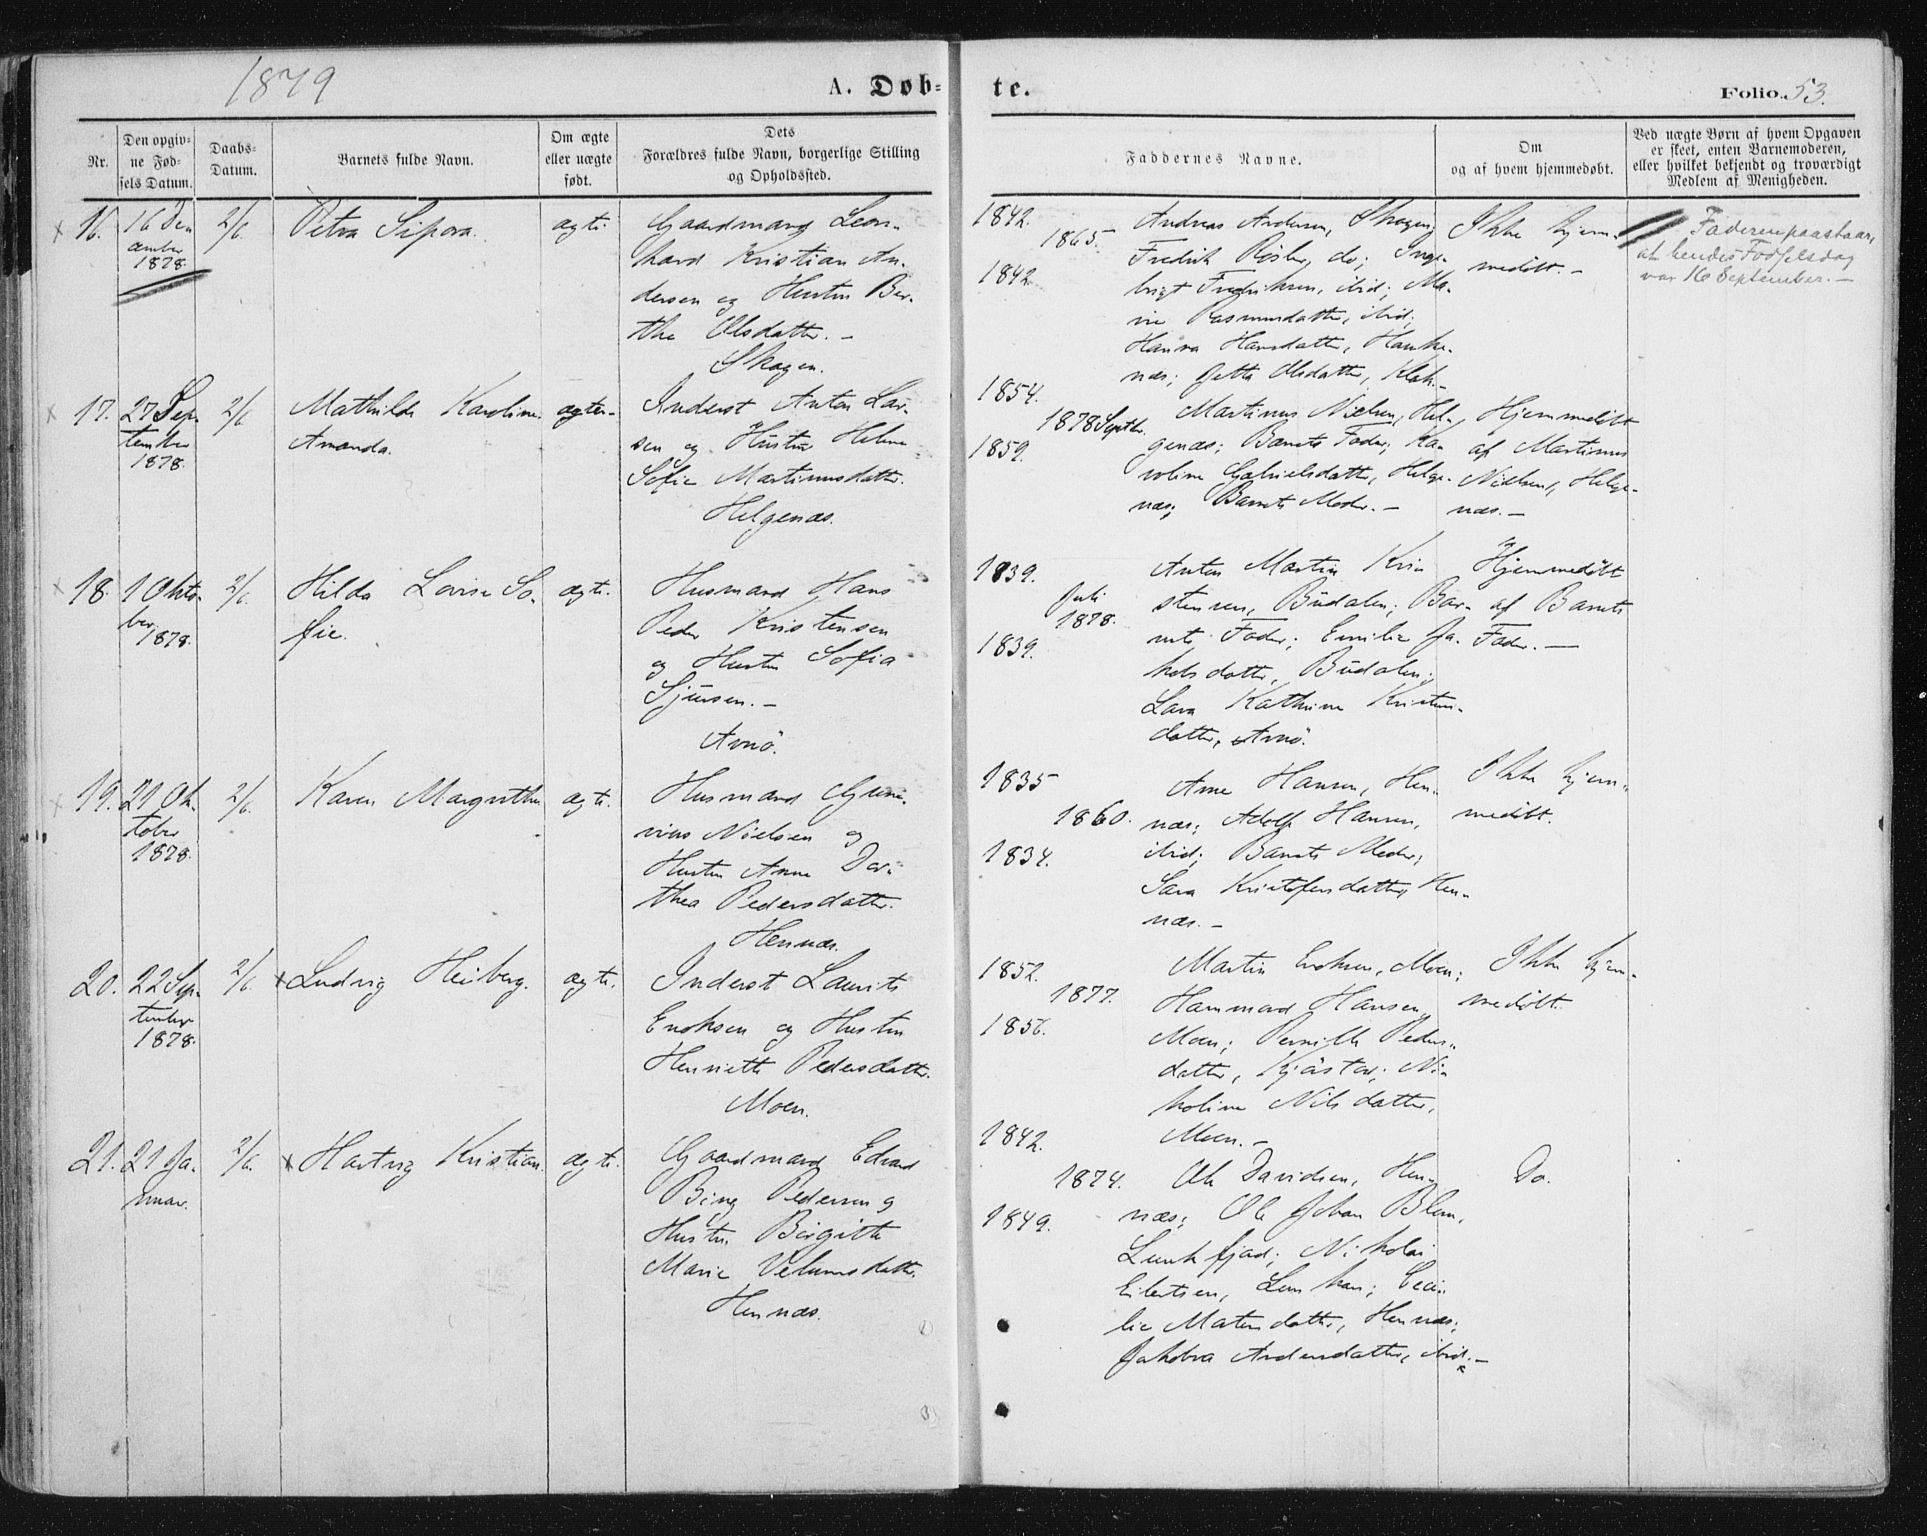 1879
A. Døb-
te.
Folio 53.
Nr.
Den opgiv-
ne Fød-
sels Datum.
Daabs-
Datum.
Barnets fulde Navn.
Om ægte
eller uægte
født.
Dets
Forældres fulde Navn, borgerlige Stilling
og Opholdssted.
Faddernes Navne.
Om
og af hvem hjemmedøbt.
Ved uægte Børn af hvem Opgaven
er skeet, enten Barnemoderen,
eller hvilket bekjendt og troværdigt
Medlem af Menigheden.
16.
16 Dec
ember
1878
2/6
Petra Sipora.
ægte.
Gaardmand Leon-
hard Kristian An-
dersen og Hustru Ber-
the Olsdatter. -
Skagen.
1842.
1865.
1842.
Andreas Andersen, Skagen;
Fredrik Røsber, do; Inge-
brigt Fredriksen, ibid; Ma-
rie Rasmusdatter, ibid;
Hanna Hansdatter, Hauke-
næs; Jetta Olsdatter,
Ikke hjem-
medøbt. -
Faderen paastaar,
at hendes Fødselsdag
var 16 September. -
17.
27 Sep-
tember
1878.
2/6
Mathilde Karoline
Amanda.
ægte.
Inderst Anton Lar-
sen og Hustru Helene
Sofie Martinusdatter.
Helgenæs.
1854.
1878 Septbr.
1859.
Martinus Nielsen, Hel-
genæs; Barnets Fader; Ka-
roline Gabrielsdatter, Helge-
næs; Barnets Moder. -
Hjemmedøbt
af Martinus
Nielsen, Helge-
næs. -
18.
1 Okto-
ber
1878.
2/6.
Hilda Lovise So-
fie.
ægte.
Husmand Hans
Peder Kristensen
og Hustru Sofia
Sjursen. -
Arnø.
1839.
Juli
1878.
1839.
Anton Martin Kri-
stensen, Büdalen; Bar-
nets Fader; Emilie Ja-
kobsdatter, Büdalen;
Lava Kathrine Kristens-
datter, Arnø.
Hjemmedøbt
af Barnets
Fader. -
19.
21 Ok-
tober
1878.
2/6.
Karen Margrethe
ægte.
Husmand
Nielsen og
Hustru Anne Dor-
thea Pedersdatter.
Hennæs.
1835
1860.
1834.
Arne Hansen, Hen-
næs; Adolf Hansen,
ibid; Barnets Moder;
Sara Kristofersdatter, Hen-
næs. -
Ikke hjem-
medøbt.
20.
22 Sep-
tember
1878.
2/6.
Ludvig Heiberg.
ægte.
Inderst Laurits
Enoksen og Hustru
Henriette Pedersdatter.
Moen.
1852.
1877.
1856.
Martin Enoksen, Moen;
Hammond Hansen,
Moen; Pernille Peders-
datter, Kjørstad; Ni-
koline Nilsdatter,
Moen. -
Ikke hjem-
medøbt.
21.
21 Ja-
nuar.
2/6.
Hartvig Kristian.
ægte.
Gaardmand Edvard
Bing Pedersen og
Hustru Birgitte
Marie Velumsdatter.
Hennæs.
1842.
1874.
1849.
Ole Davidsen, Hen-
næs; Ole Johan Blom,
Leunkfjord; Nikolai
Eilertsen, ; Ceci-
lie Matsdatter, Hennæs;
Jakobva Andersdatter, ibid. -
Do.